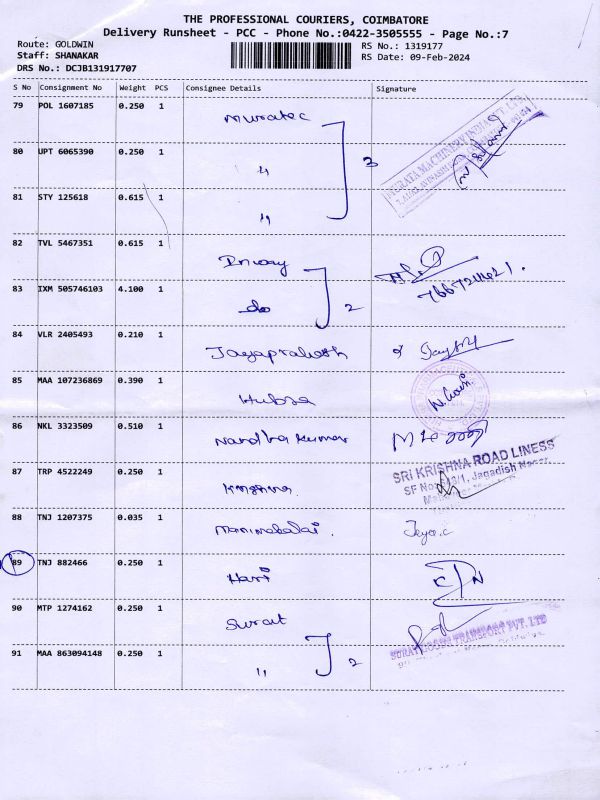 THE PROFESSIONAL COURIERS, COIMBATORE
Delivery Runsheet - PCC - Phone No.:0422-3505555 - Page No.:7
Route: GOLDWIN RS No.: 1319177
Staff: SHANAKAR RS Date: 09-Feb-2024
DRS No.: DCJB131917707
S No Consignment No Weight PCS Consignee Details Signature
79 POL 1607185 0.250 1 Muratec
80 UPT 6065390 0.250 1 "
3
81 STY 125618 0.615 1 "
82 TVL 5467351 0.615 1
83 IXM 505746103 4.100 1 do 2
84 VLR 2405493 0.210 1 Jayaprakash
85 MAA 107236869 0.390 1 Hubsa
86 NKL 3323509 0.510 1 Nandha Kumar
87 TRP 4522249 0.250 1 Krishna
SRI KRISHNA ROAD LINESS
SF No. 513/1, Jagadish Nagar
88 TNJ 1207375 0.035 1 Manimekalai Jeya.c
89 TNJ 882466 0.250 1 Hari
90 MTP 1274162 0.250 1 Surat
SURAT GOODS TRANSPORT PVT. LTD
91 MAA 863094148 0.250 1 " 2